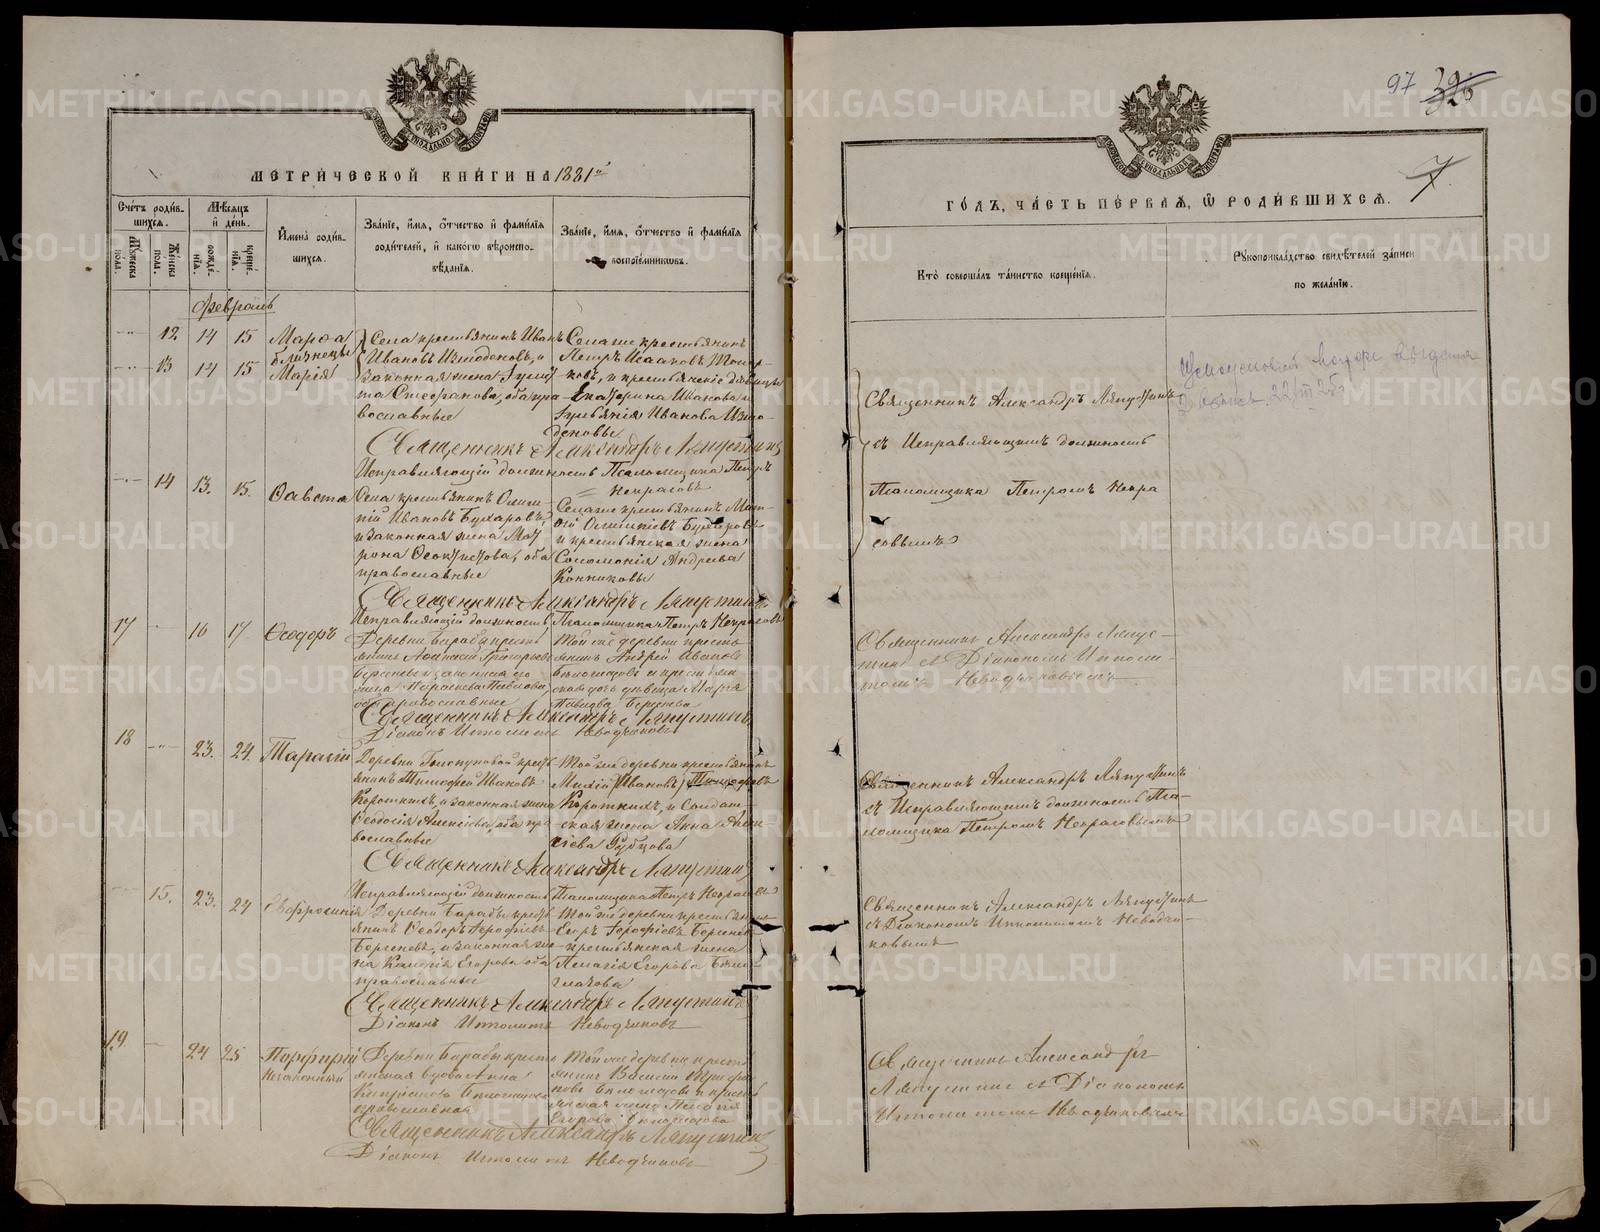 97 326
7
МЕТРИЧЕСКОЙ КНИГИ НА 1881й
ГОДЪ, ЧАСТЬ ПЕРВАЯ, Ѡ РОДИВШИХСЯ.
Счетъ родившихся.
Мужеска пола.
Женска пола.
Мѣсяцъ и день.
рожденія.
крещенія.
Имена родившихся.
Званіе, имя, отчество и фамилія родителей, и какого вѣроисповѣданія.
Званіе, имя, отчество и фамилія воспріемниковъ.
Кто совершалъ таинство крещенія.
Рукоприкладство свидѣтелей записи по желанію.
Февраль
12 14 15 Марѳа
близнецы
13 14 15 Марія
Села крестьянинъ Иванъ
Ивановъ Измоденовъ, и
законная жена Іули-
та Стефанова, оба пра-
вославные
Села же крестьянинъ
Петръ Исааковъ
ковъ, и крестьянскіе дѣвицы
Екатерина Иванова и
Іуліанія Иванова Измо-
деновы.
Священникъ Александръ Ляпустинъ
Исправляющій должность Псаломщика Петръ
Некрасовъ
Священникъ Александръ Ляпустинъ
съ Исправляющимъ должность
Псаломщика Петромъ Некра
совымъ
14 13. 15. Ѳавста
Села крестьянинъ
Ивановъ Бухаровъ,
и законная жена Мат
рона Ѳеоктистова, оба
православные
Села же крестьянинъ
Бухаровъ
и крестьянская жена
Соломонія Андреева
Конниковы
Священникъ Александръ Ляпустинъ
Исправляющій должность Псаломщика Петръ Некрасовъ
17 16 17. Ѳеодоръ
Деревни Барабы кресть
янинъ Аѳанасій Григорьевъ
Бергеневъ и законная его
жена Параскева Павлова
оба православные
Той же деревни кресть
янинъ Андрей Ивановъ
и крестьян
ская дѣвица Марія
Павлова Бергенева
Священникъ Александръ Ляпустинъ
Діаконъ Ипполитъ Неводчиковъ
Священникъ Александръ Ляпус-
тинъ съ Діакономъ Ипполи-
томъ Неводчиковымъ
18 23. 24. Тарасій
Деревни крест
янинъ Тимофей Ивановъ
Короткихъ, и законная жена
Ѳеодосія Алексіева, оба пра
вославные
Той же деревни крестьянинъ
Ивановъ
Короткихъ, и Солдат-
ская жена Анна Алек-
сіева Рубцова
Священникъ Александръ Ляпустинъ
Исправляющій должность Псаломщика Петръ Некрасовъ
Священникъ Александръ Ляпустинъ
съ Исправляющимъ должность Пса-
ломщика Петромъ Некрасовымъ
15. 23. 24 Евфросинія
Деревни Барабы крест
янинъ Ѳеодоръ
Бергеневъ, и законная же-
на Егорова оба
православные
Той же деревни крестьянинъ
Егоръ Бергеневъ
крестьянская жена
Пелагія Егорова Бѣло-
глазова
Священникъ Александръ Ляпустинъ
Діаконъ Ипполитъ Неводчиковъ
Священникъ Александръ Ляпустинъ
съ Діакономъ Ипполитомъ Неводчи-
ковымъ
19 24 25 Порфирій
незаконный
Деревни Барабы кресть
янская вдова Анна
Кипріанова
православная
Той же деревни кресть
янинъ Василій
и кресть
янская жена Пелагія
Егорова
Священникъ Александръ Ляпустинъ
Діаконъ Ипполитъ Неводчиковъ
Священникъ Александръ
Ляпустинъ съ Діакономъ
Ипполитомъ Неводчиковымъ
METRIKI.GASO-URAL.RU